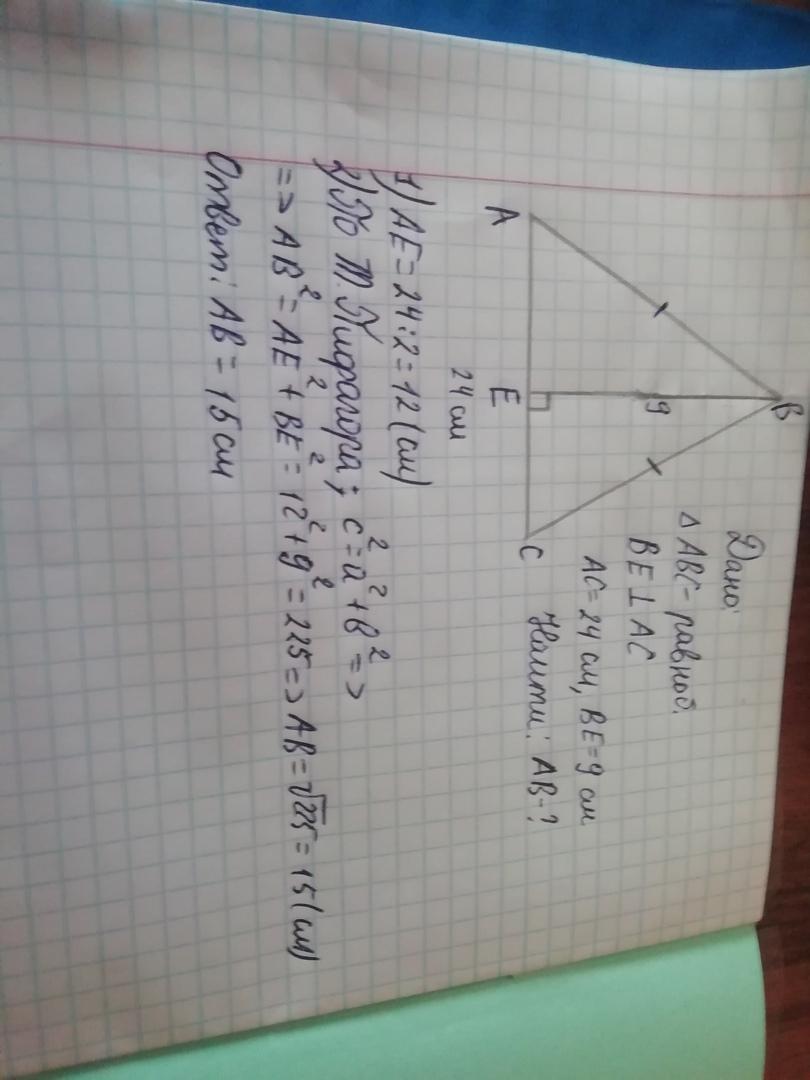 B
9
A
E
C
24 см
Дано:
△ ABC - равноб.
BE ⊥ AC
AC = 24 см, BE = 9 см
Найти: AB - ?
1) AE = 24 : 2 = 12 (см)
2) По т. Пифагора; c² = a² + b² =>
=> AB² = AE² + BE² = 12² + 9² = 225 => AB = √225 = 15 (см)
Ответ: AB = 15 см